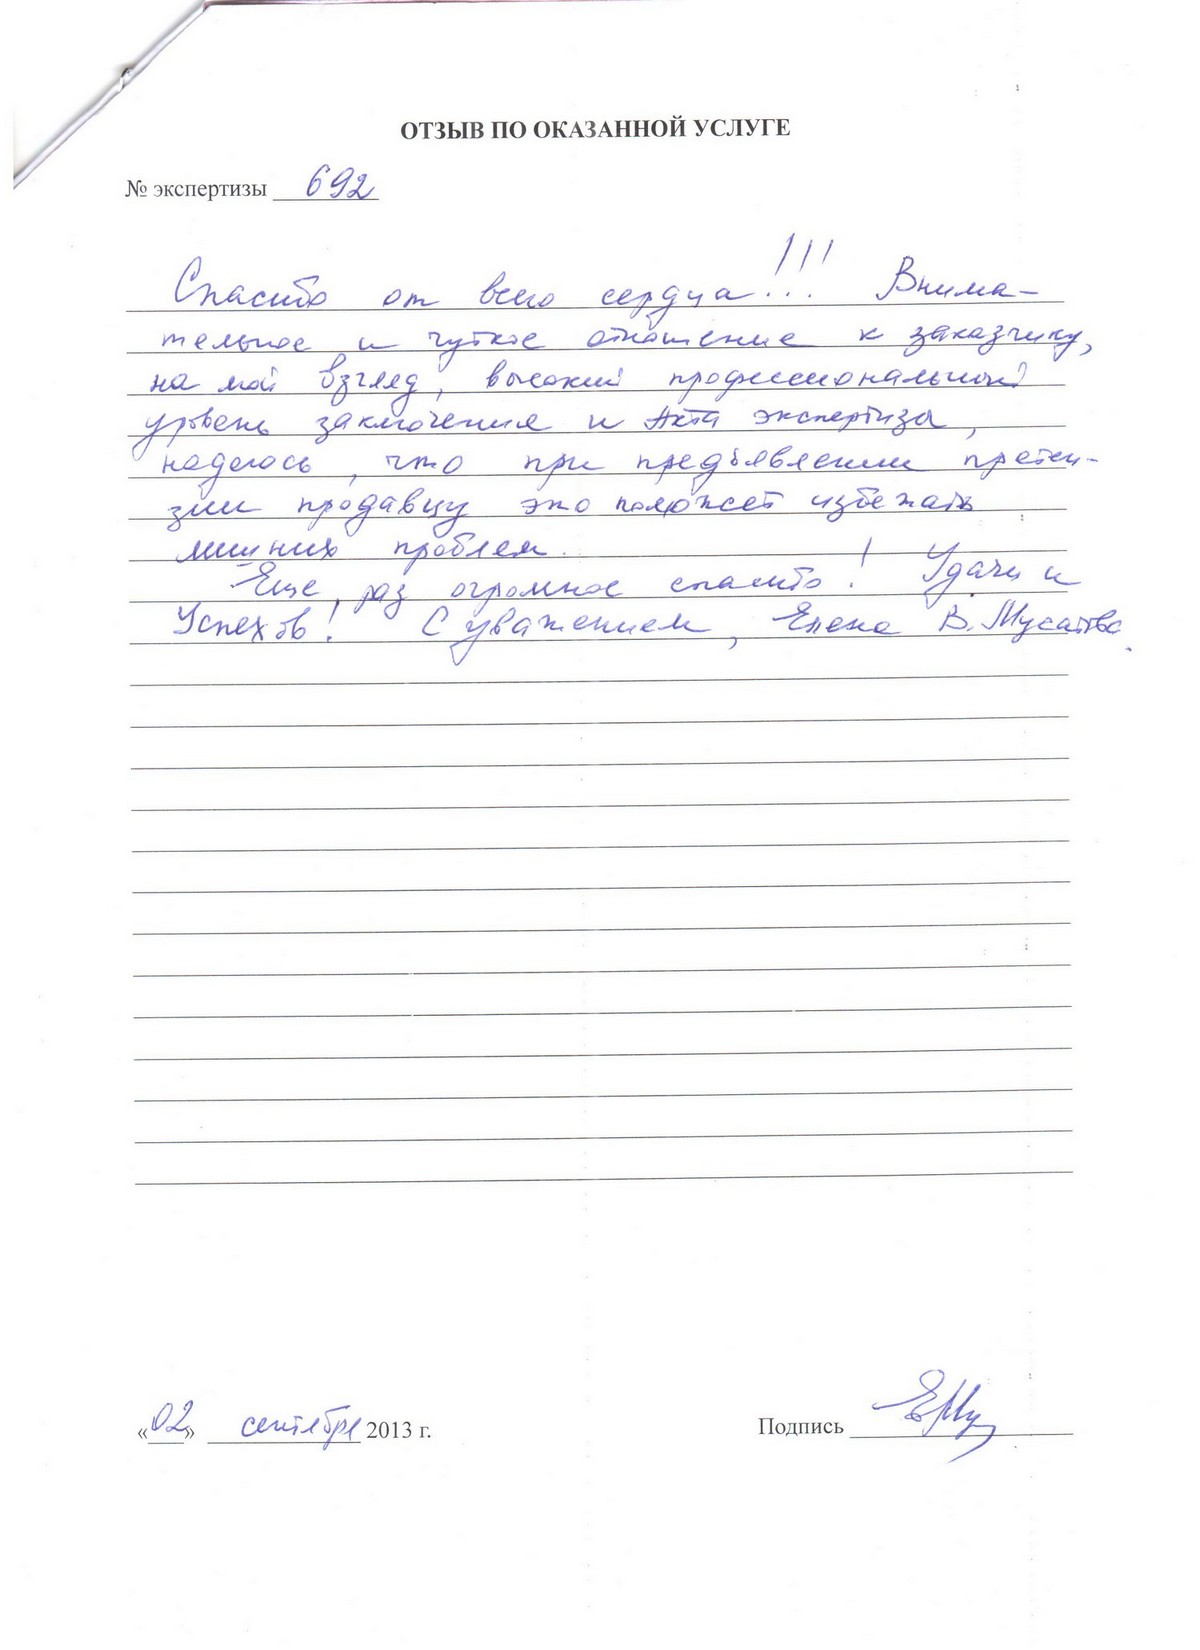 ОТЗЫВ ПО ОКАЗАННОЙ УСЛУГЕ
№ экспертизы 692
Спасибо от всего сердца!!! Внима-
тельное и чуткое отношение к заказчику,
на мой взгляд, высокий профессиональный
уровень заключения и Акта экспертизы,
надеюсь, что при предъявлении претен-
зии продавцу это поможет избежать
лишних проблем.
Еще раз огромное спасибо! Удачи и
Успехов! С уважением, Елена В. Мусатова.
«02» сентября 2013 г.
Подпись